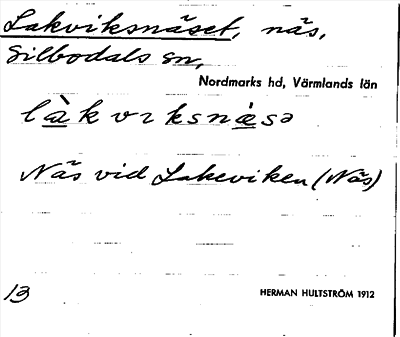 Lakviksnäset, näs,
Silbodals sn,
Nordmarks hd, Värmlands län
làkvıksnèsə
Näs vid Lakeviken (Näs)
13
HERMAN HULTSTRÖM 1912